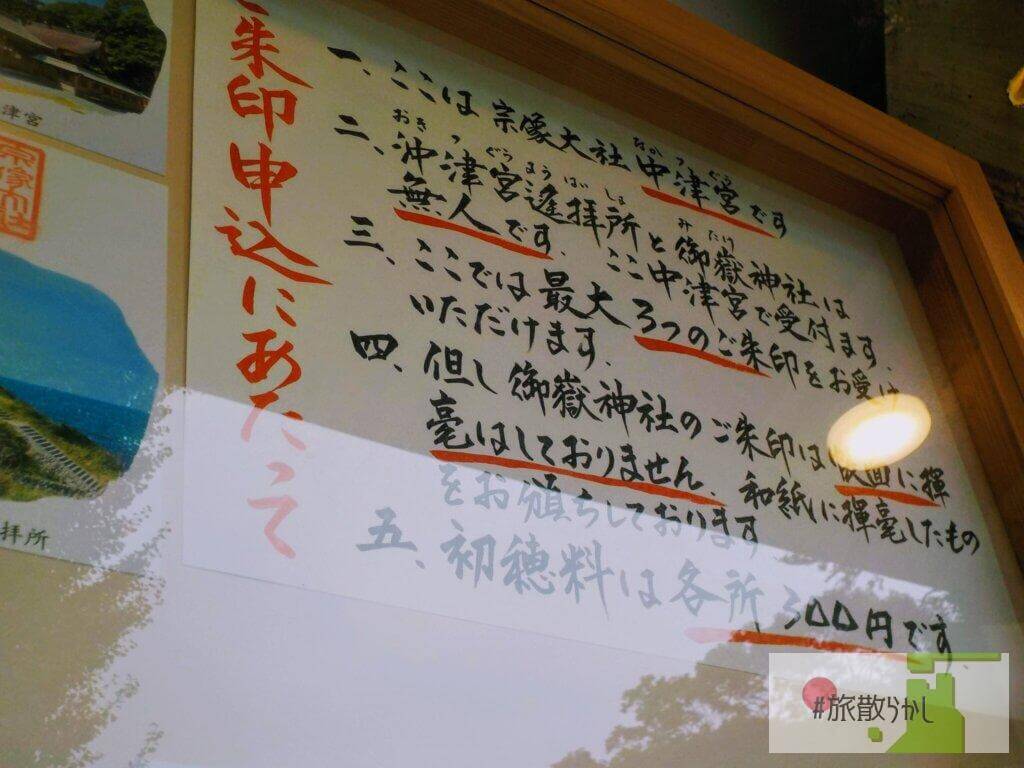 朱印申込にあたって
一、ここは宗像大社中津宮です
なかつぐう
二、沖津宮遙拝所と御嶽神社は
おきつぐうようはいしょ
みたけ
無人です.ここ中津宮で受付ます.
三、ここでは最大3つのご朱印をお受け
いただけます.
四、但し御嶽神社のご朱印は 面に揮
毫はしておりません.和紙に揮毫したもの
をお頒ちしております
五、初穂料は各所300円です
津宮
宗像大社
拝所
#旅散らかし